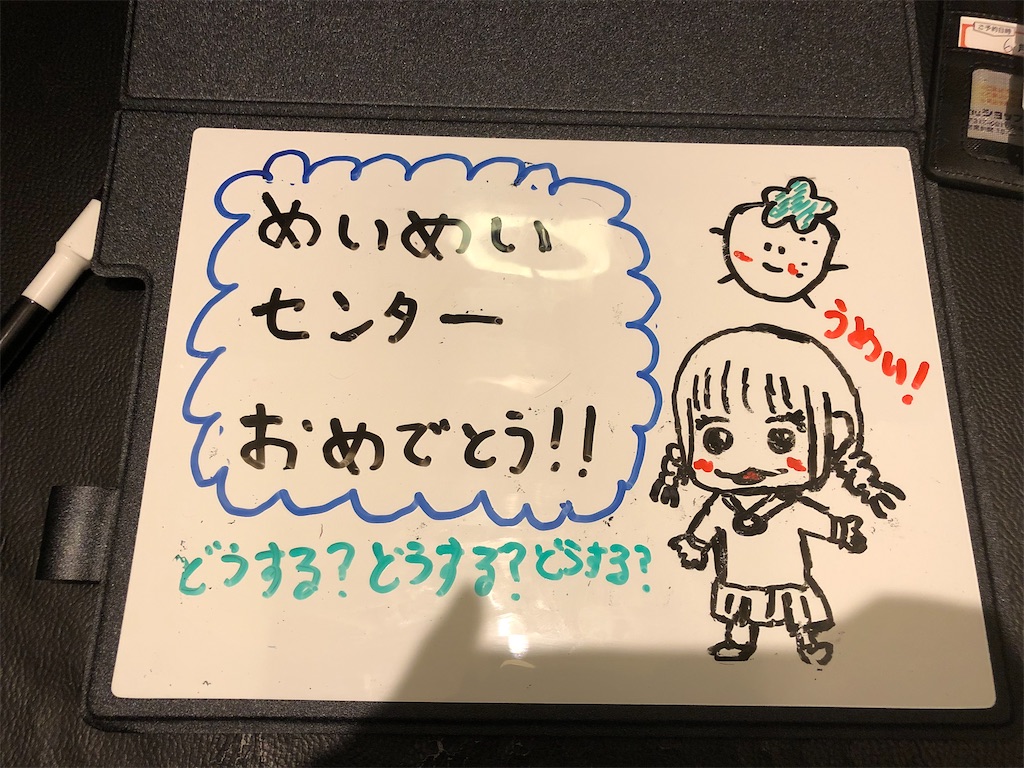 めいめい
センター
おめでとう!!
うめぃ!
どうする?どうする?どうする?
ご予約日時